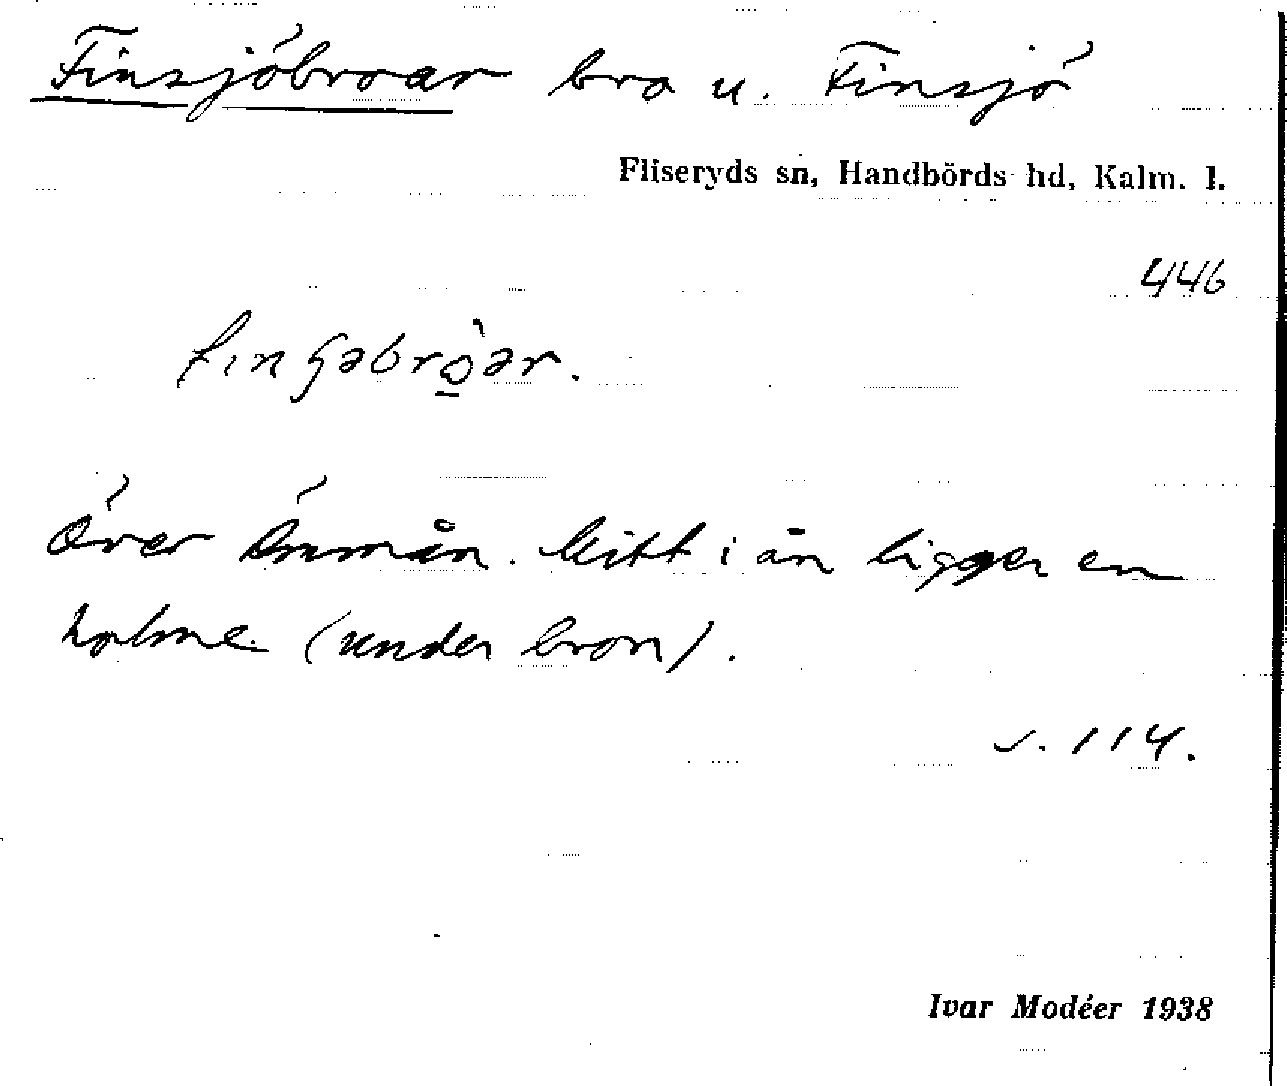 Finsjöbroar bro u. Finsjö
Fliseryds sn, Handbörds hd, Kalm. l.
446
Över Emmån. Mitt i ån ligger en
holme (under bron).
s. 114.
Ivar Modéer 1938